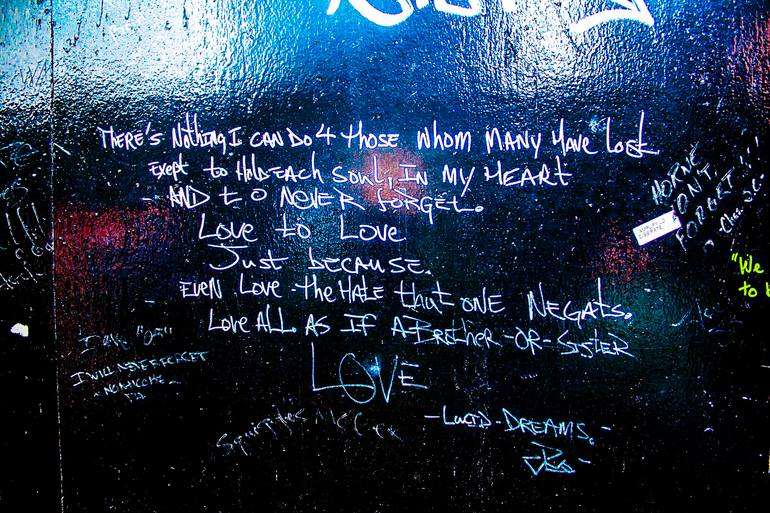 THERE'S NOTHING I CAN DO 4 THOSE WHOM MANY HAVE LOST
EXEPT to HOLD EACH SOUL, IN MY HEART
-AND tO NEVER FORGET.
LOVE to LOVE
JUST BECAUSE.
EVEN LOVE the HATE that ONE NEGATS.
LOVE ALL AS IF A BROTHER-OR-SISTER
LOVE
-LUCID-DREAMS.-
I WILL NEVER FORGET
HORNE
DON'T
FORGET!!!
"We
to b